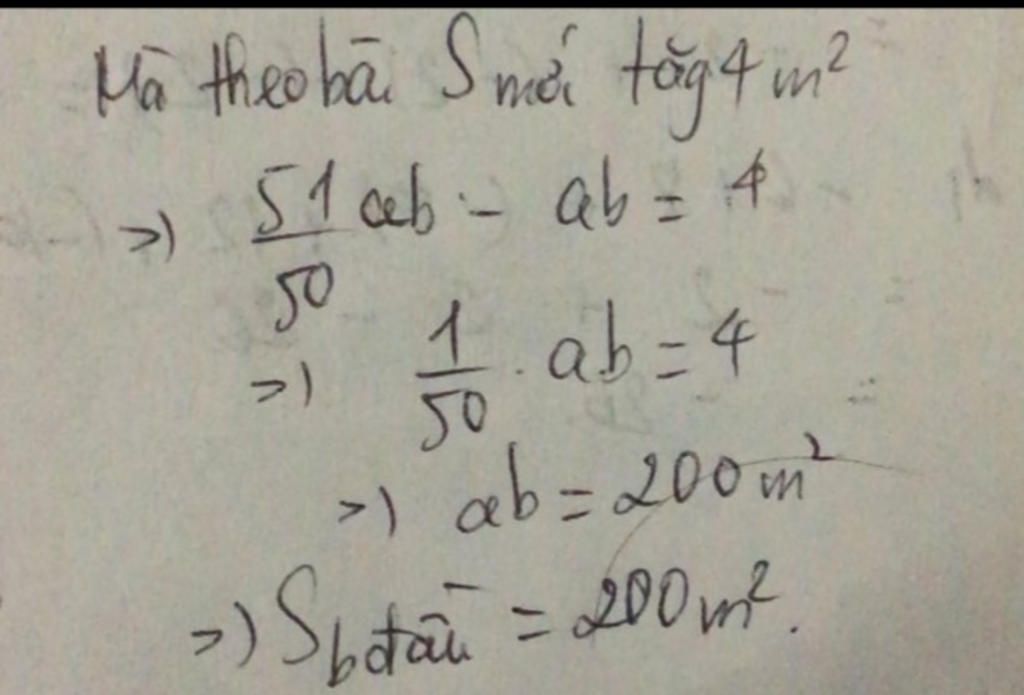 Mà theo bài S mới tăg 4 m²
=> 51/50 ab - ab = 4
=> 1/50 . ab = 4
=> ab = 200 m²
=> S b đầu = 200 m².